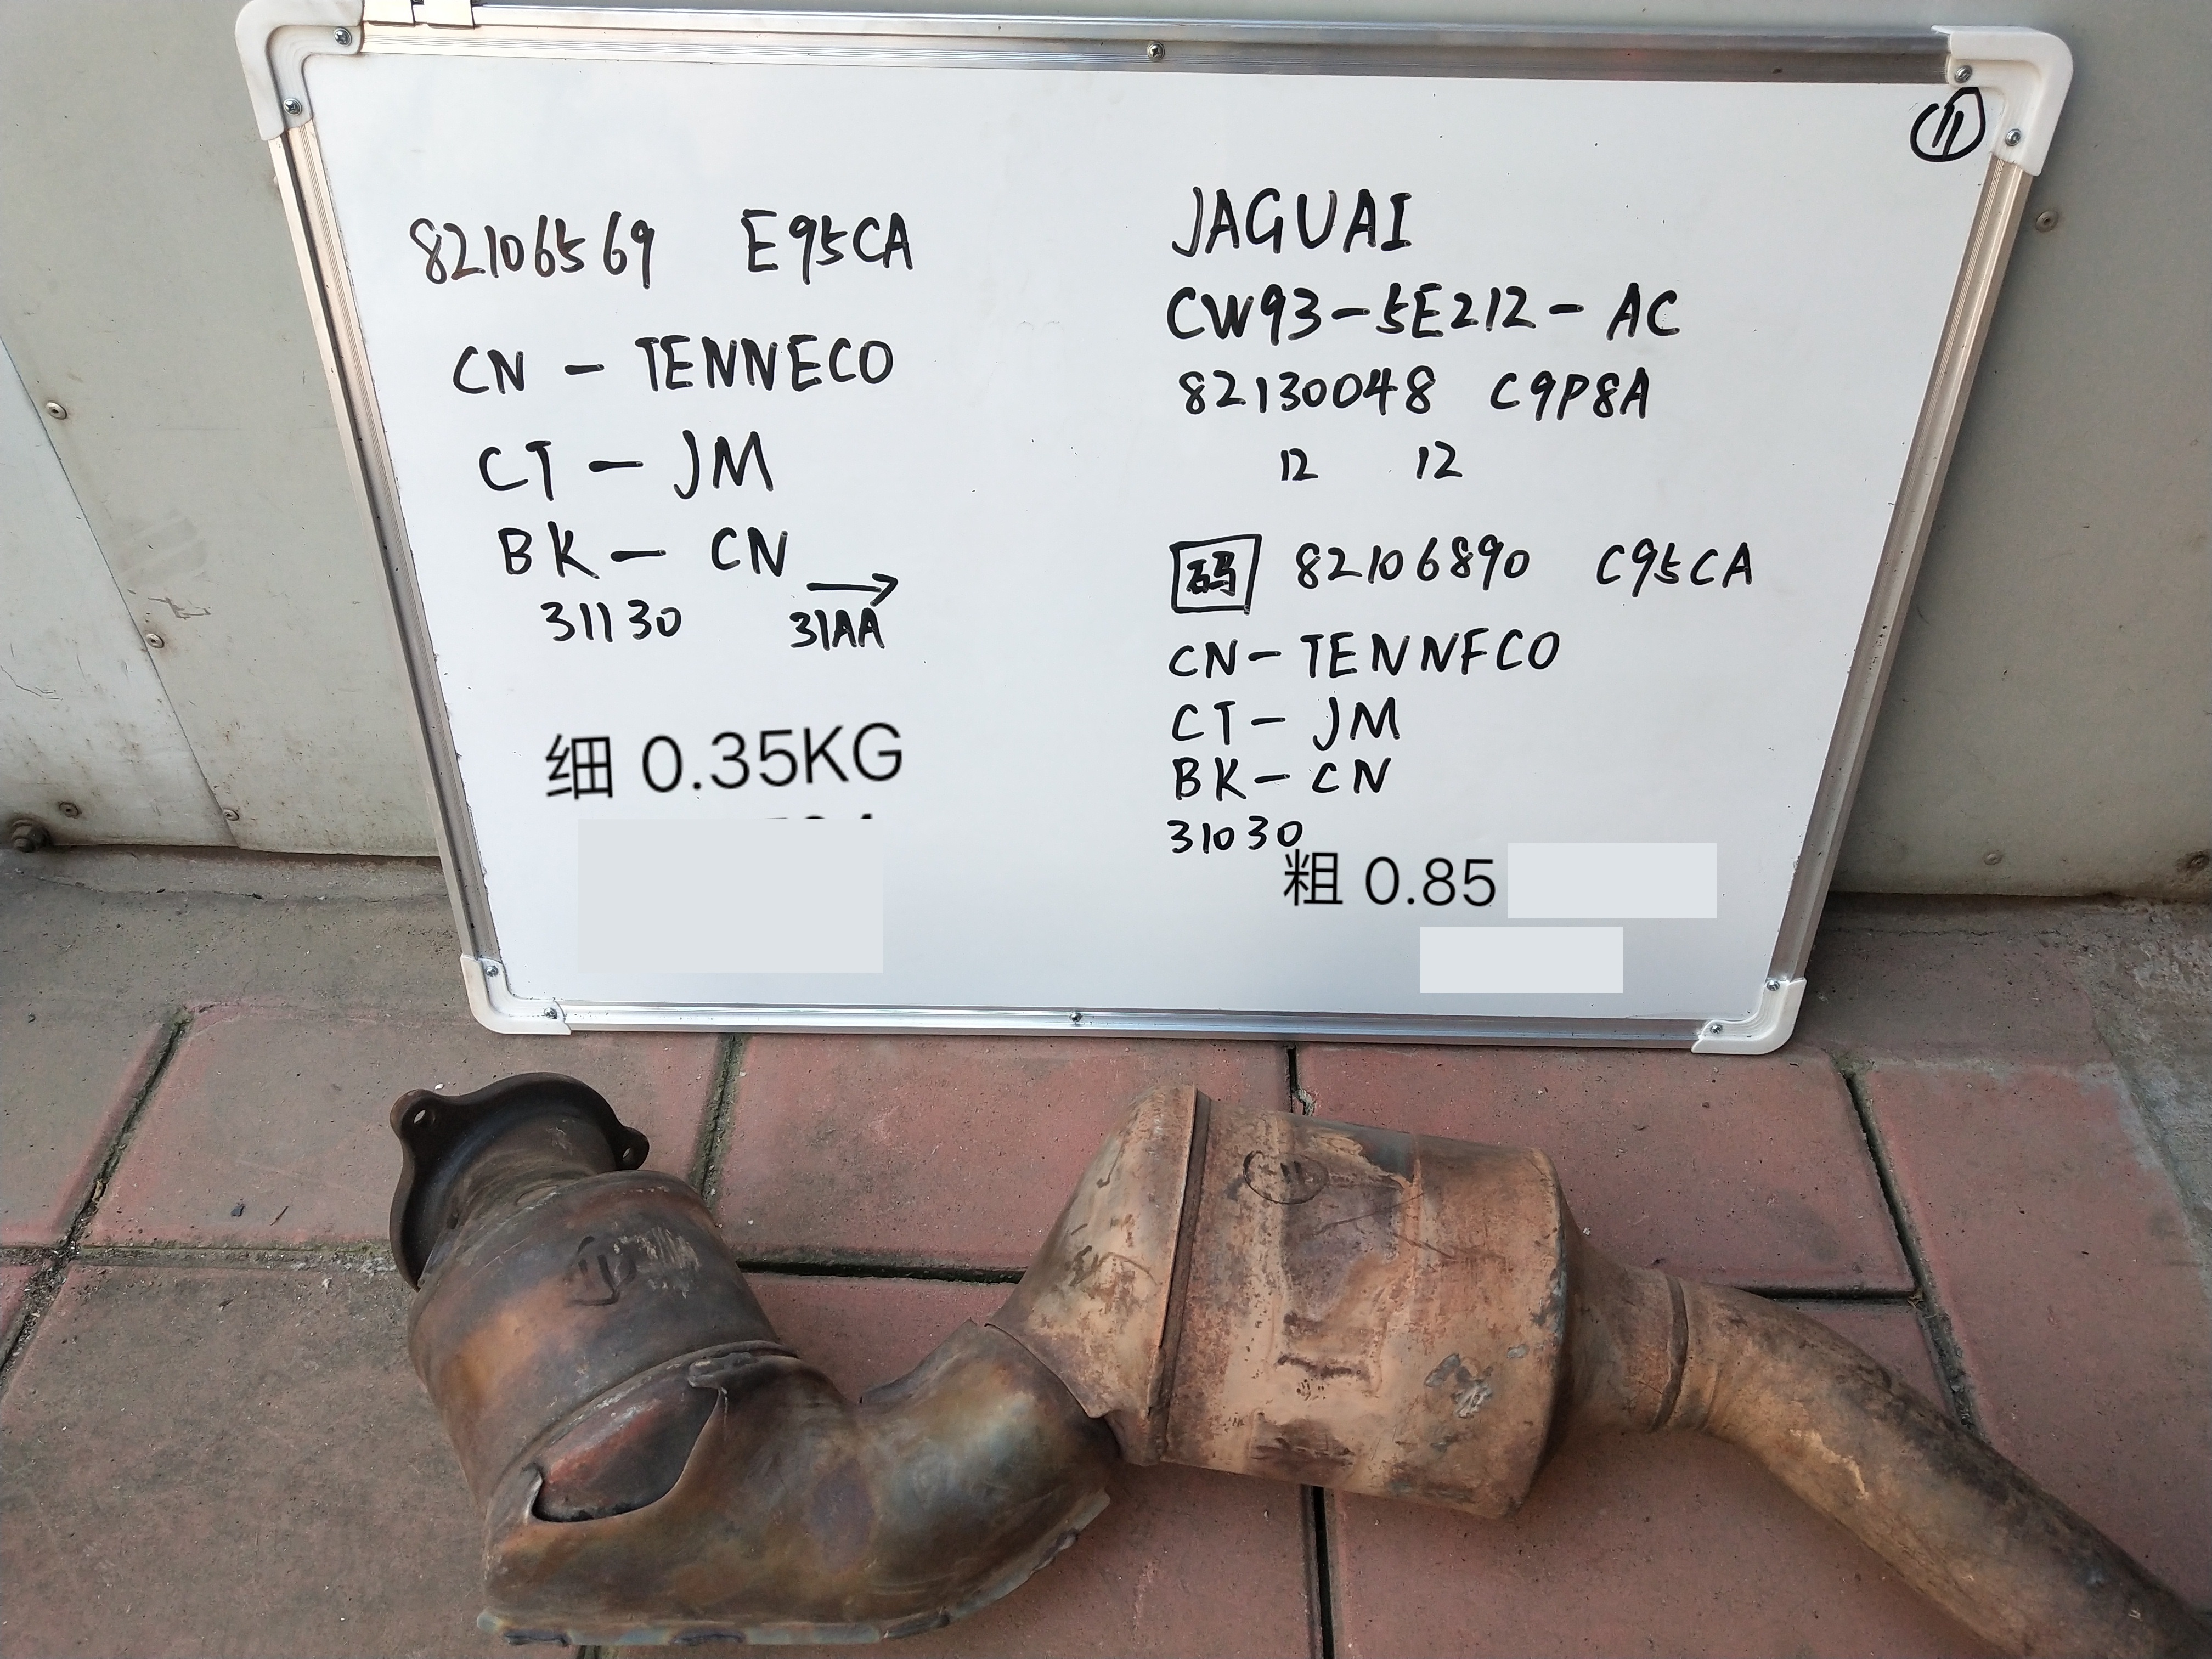 ⑪
82106569 E95CA
CN - TENNECO
CT - JM
BK - CN →
31130 31AA
细 0.35KG
JAGUAI
CW93-5E212-AC
82130048 C9P8A
12 12
码 82106890 C95CA
CN-TENNFCO
CT-JM
BK-CN
31030
粗 0.85
⑪